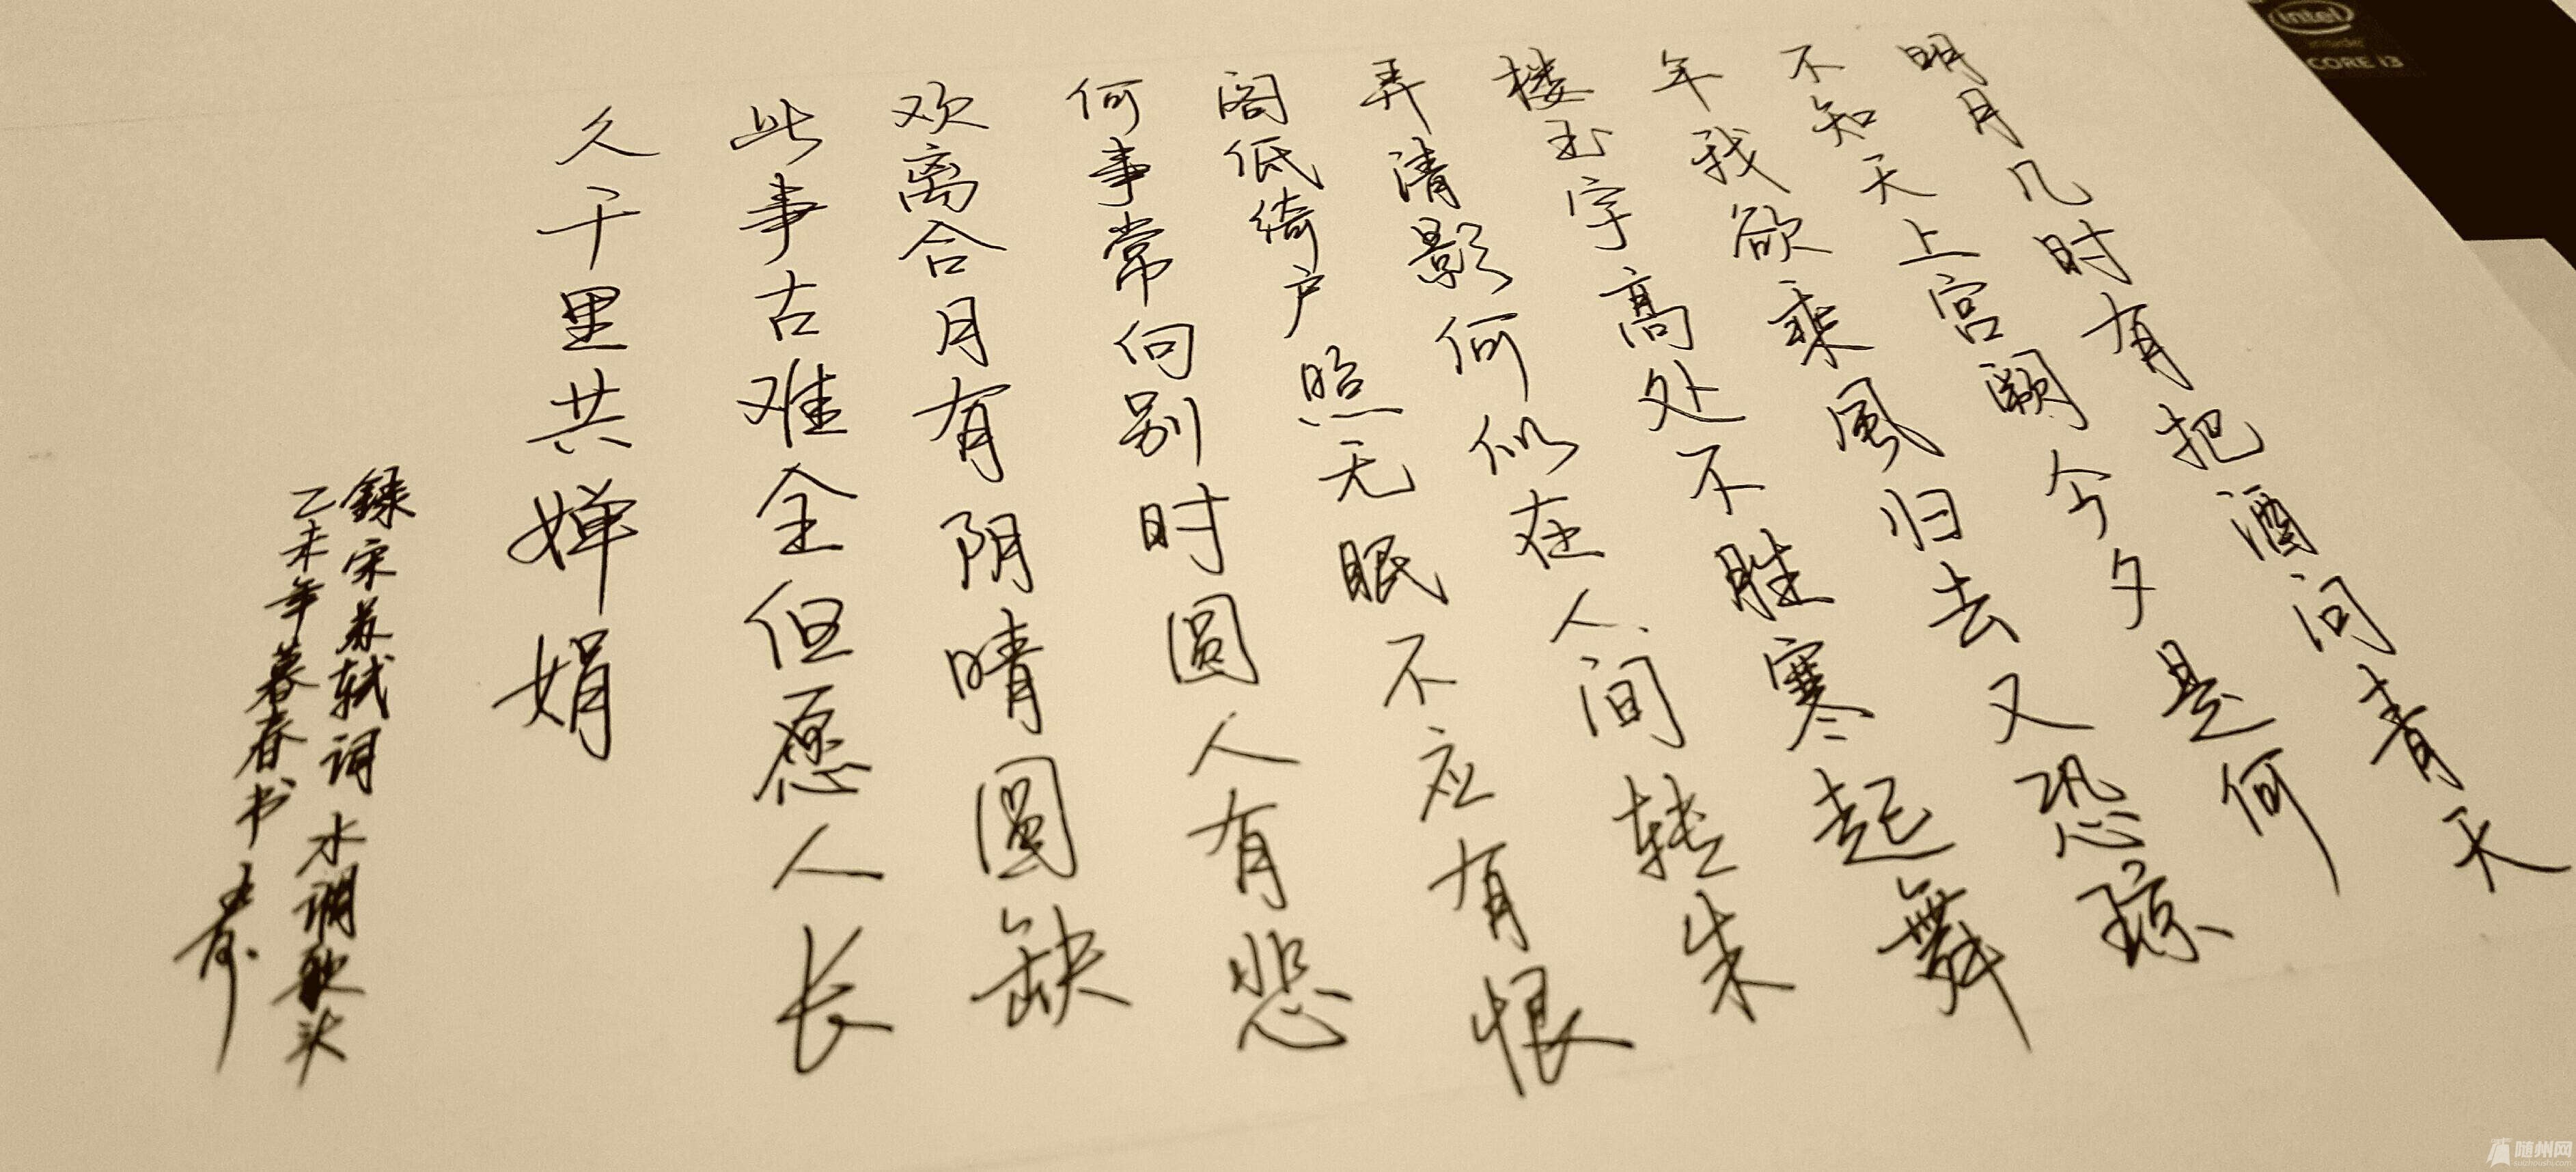 明月几时有把酒问青天
不知天上宫阙今夕是何
年我欲乘風归去又恐琼
楼玉宇高处不胜寒起舞
弄清影何似在人间转朱
阁低绮户照无眠不应有恨
何事常向别时圆人有悲
欢离合月有阴晴圆缺
此事古难全但愿人长
久千里共婵娟
録宋苏轼词 水调歌头
乙未年暮春书
intel
inside
CORE i3
随州网
suizhoushi.com